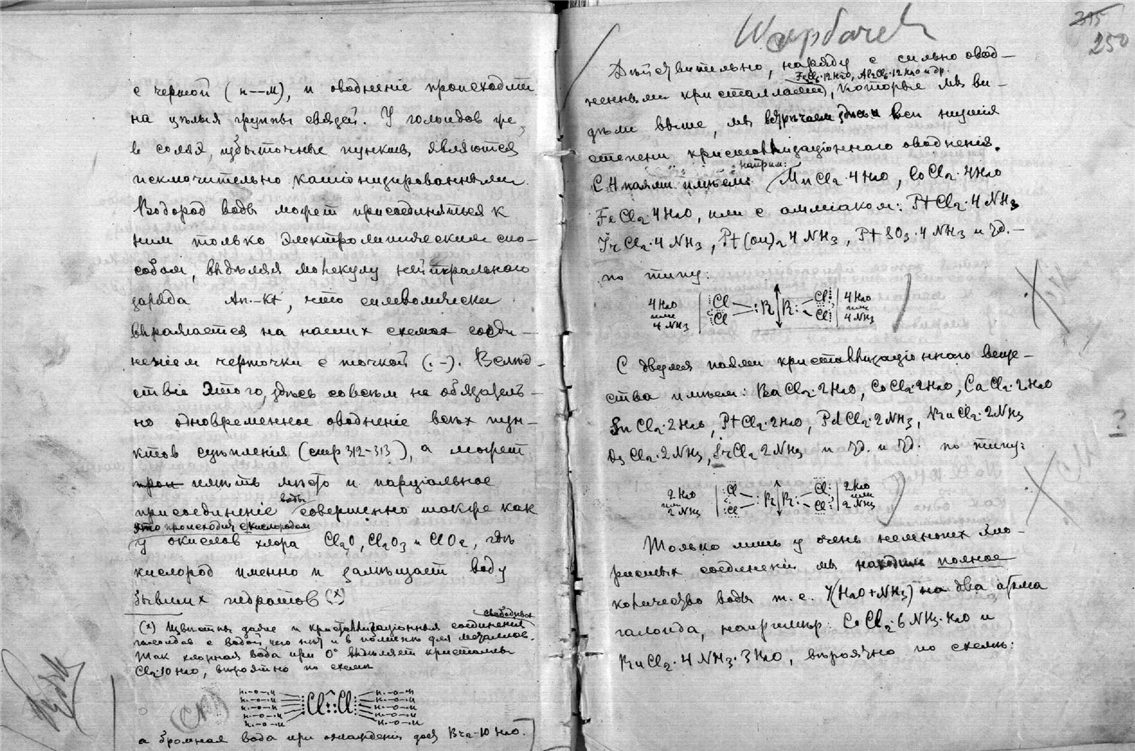 с чертой (н—м), и оводненіе происходит
на цѣлыя группы связей. У голоидов же,
в солях, избыточные пункты являются
исключительно катіонизированными.
Водород воды может присоединяться к
ним только электролитическим спо-
собом, выдѣляя молекулу нейтральнаго
заряда An—Kt, что символически
выражается на наших схемах соеди-
неніем черточки с точкой (.–). Вслѣд-
ствіе этого, здѣсь совсѣм не обязатель-
но одновременное оводненіе всѣх пун-
ктов сцѣпленія (стр 312-313), а может
имѣть мѣсто и парціальное
присоединеніе воды совершенно так же как
это происходит с кислородом
у окислов хлора Cl₂O, Cl₂O₃ и ClO₂, гдѣ
кислород именно и замѣщает воду
бывших гидратов (x)
(x) Извѣстны даже и кристаллизаціонныя свободные соединения
голоидов с водой, чего нет и в помине для металлов.
Так хлорная вода при 0° выдѣляет кристаллы
Cl₂·10H₂O, вѣроятно по схемѣ
н·–о–н
н·–о–н
н·–о–н
н·–о–н
н·–о–н
:Cl::Cl:
н·–о–н
н·–о–н
н·–о–н
н·–о–н
н·–о–н
а бромная вода при охлажденіи дает Br₂·10H₂O.
Щербачев
315
250
Дѣйствительно, наряду с сильно овод-
FeCl₃·12H₂O, AlCl₃·12H₂O и др.
ненными кристаллами, которые мы ви-
дѣли выше, мы встрѣчаем здѣсь и всѣ низшія
степени кристаллизаціоннаго оводненія.
С 4 паями имѣем наприм: MnCl₂·4H₂O, CoCl₂·4H₂O
FeCl₂·4H₂O, или с амміаком: PtCl₂·4NH₃
IrCl₂·4NH₃, Pt(OH)₂4NH₃, PtSO₃·4NH₃ и др. –
по типу:
4H₂O или 4NH₃ | Cl Cl :R R: Cl Cl | 4H₂O или 4NH₃
С двумя паями кристаллизаціоннаго веще-
ства имѣем: BaCl₂·2H₂O, CoCl₂·2H₂O, CaCl₂·2H₂O
SnCl₂·2H₂O, PtCl₂·2H₂O, PdCl₂·2NH₃, RuCl₂·2NH₃
OsCl₂·2NH₃, IrCl₂·2NH₃ и др. и др. по типу:
2H₂O или 2NH₃ | Cl Cl :R R: Cl Cl | 2H₂O или 2NH₃
?
Только лишь у очень немногих хло-
ристых соединеній мы находим полное
количество воды т.е. 7(H₂O+NH₃) на два атома
галоида, например: CoCl₂·6NH₃·H₂O и
RuCl₂·4NH₃·3H₂O, вѣроятно по схемѣ: